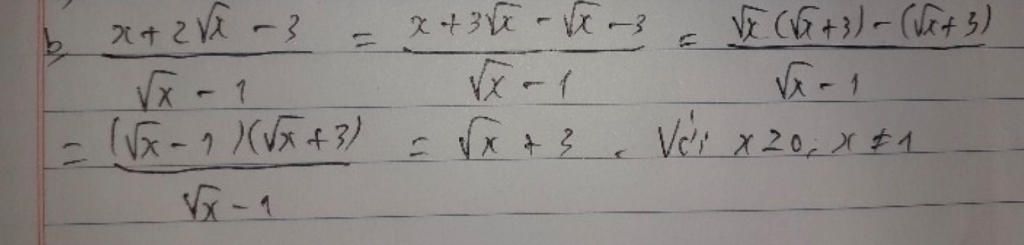 b, (x + 2√x - 3)/(√x - 1) = (x + 3√x - √x - 3)/(√x - 1) = (√x (√x + 3) - (√x + 3))/(√x - 1)
= ((√x - 1)(√x + 3))/(√x - 1) = √x + 3 . Với x ≥ 0; x ≠ 1